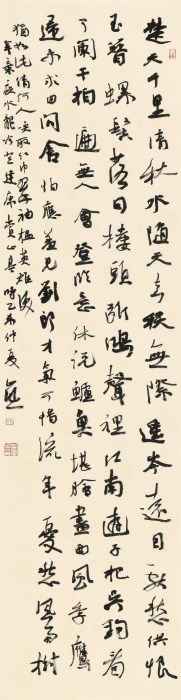 楚天千里清秋水隨天去秋無際遙岑遠目獻愁供恨
玉簪螺髻落日樓頭斷鴻聲裡江南遊子把吳鉤看
了闌干拍遍無人會登臨意休說鱸魚堪膾盡西風季鷹
歸未求田問舍怕應羞見劉郎才氣可惜流年憂愁風雨樹
猶如此倩何人喚取紅巾翠袖揾英雄淚
辛棄疾水龍吟登建康賞心亭時乙未仲夏